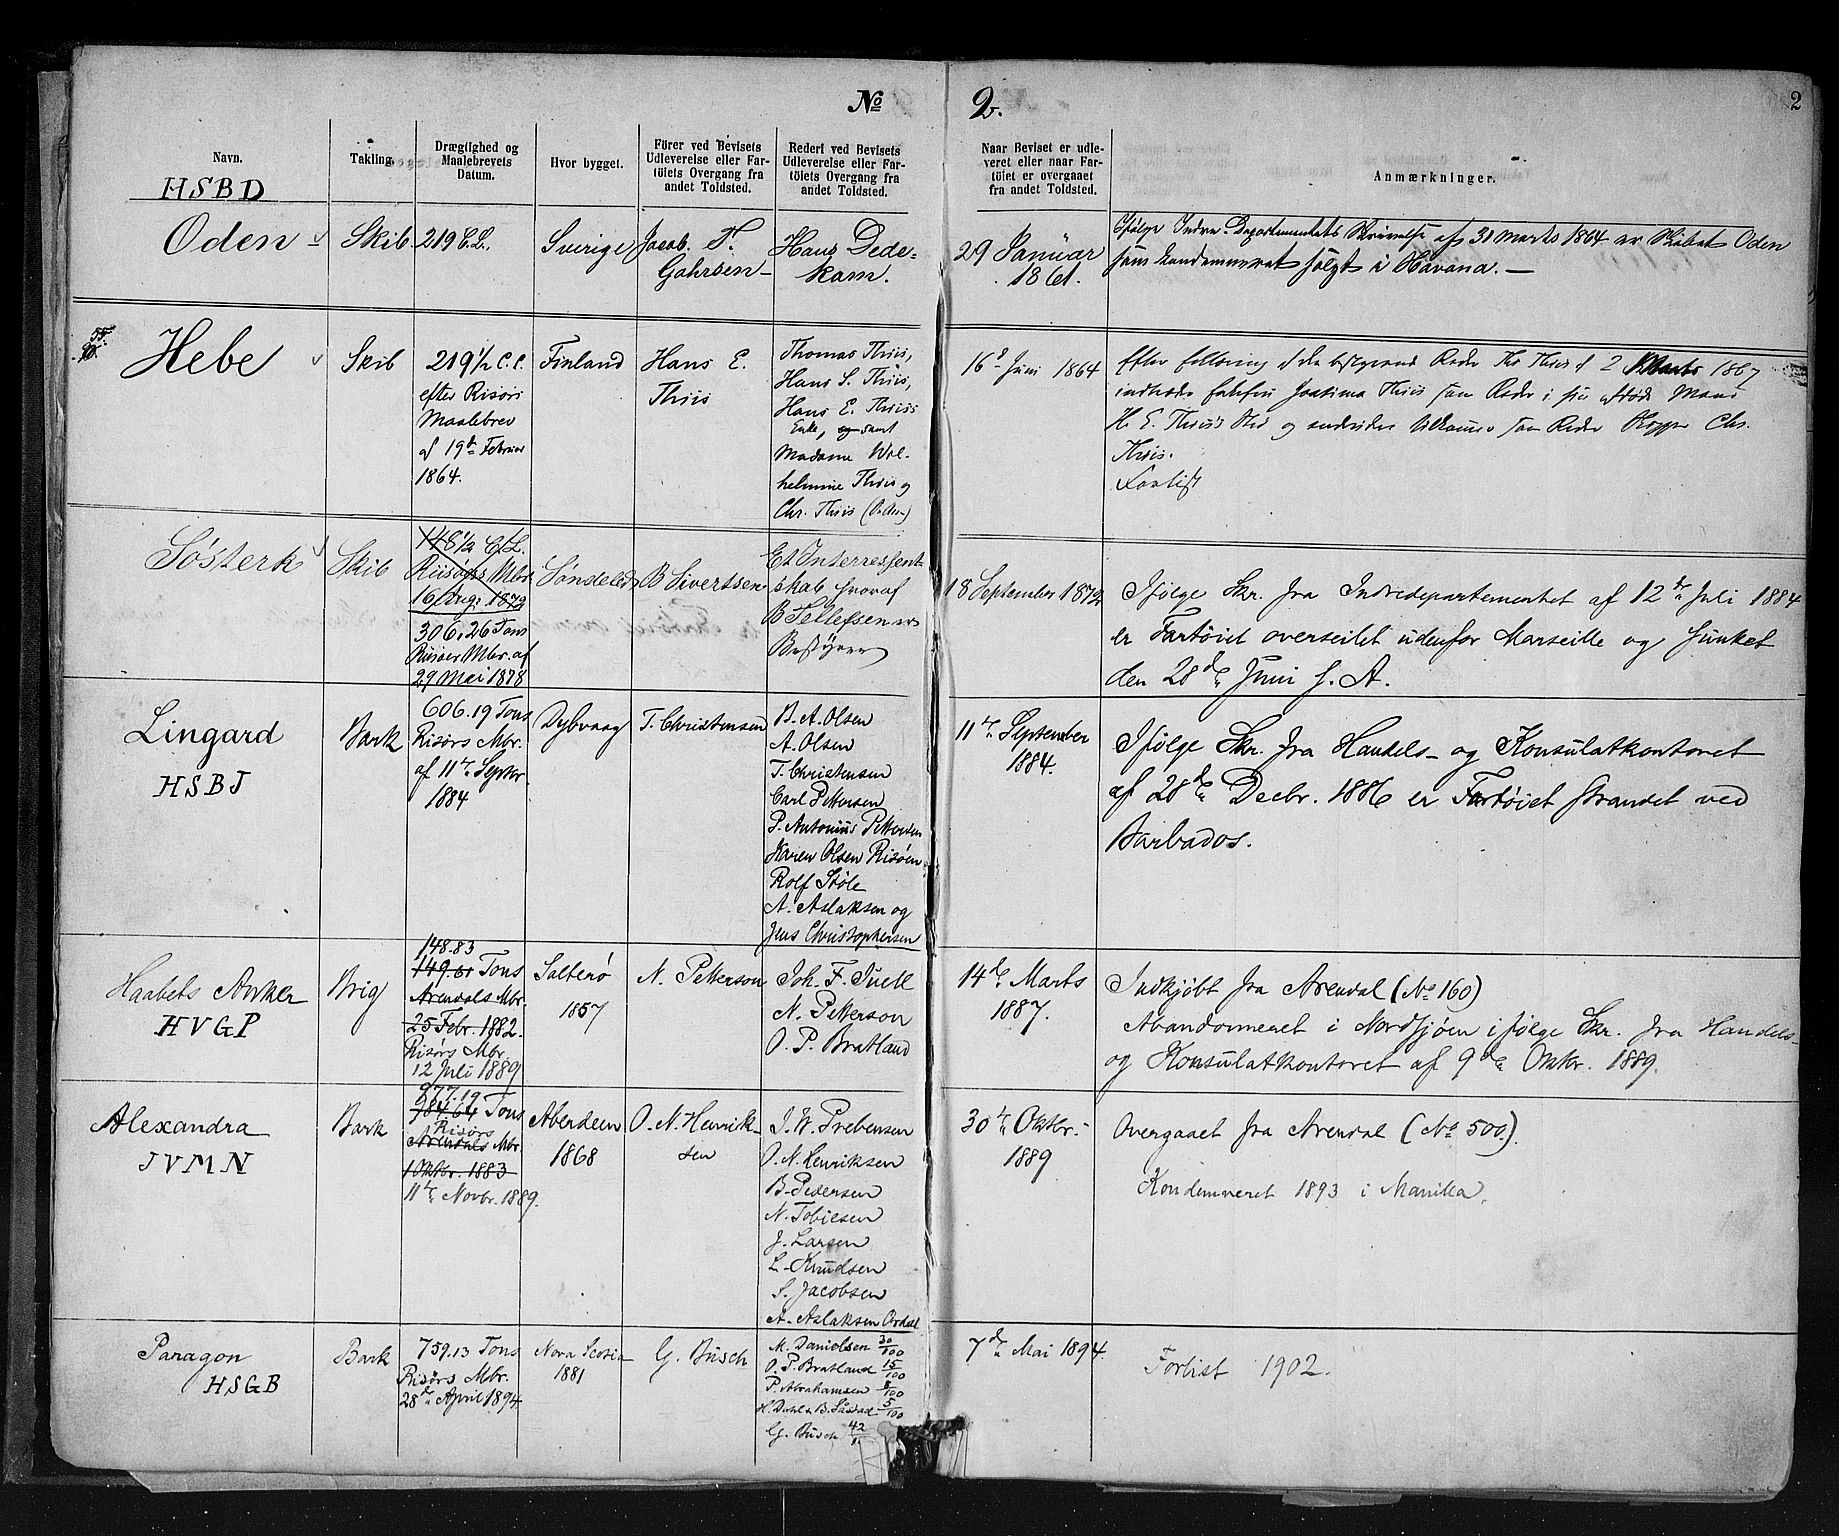 No 2.
2
Navn.
Takling.
Drægtighed og
Maalebrevets
Datum.
Hvor bygget.
Fürer ved Bevisets
Udleverelse eller Far-
töiets Overgang fra
andet Toldsted.
Rederi ved Bevisets
Udleverelse eller Far-
töiets Overgang fra
andet Toldsted.
Naar Beviset er udle-
veret eller naar Far-
töiet er overgaaet
fra andet Toldsted.
Anmærkninger.
HSBD
Oden
Skib
219 C.L.
Sverige
Jacob. T.
Gahrsen
Hans Dede-
kam.
29 Januar
1861.
Ifølge Indre-Departementets Skrivelse af 31 Marts 1864 er Skibet Oden
som kondemneret solgt i Havana.
Hebe
Skib
219 1/2 C.L.
efter Risörs
Maalebrev
af 19de Februar
1864.
Finland
Hans E.
Thiis
Thomas Thiis,
Hans S. Thiis,
Hans E. Thiis
Enke, og samt
Madame Wil-
helmine Thiis og
Chr. Thiis
16de Juni 1864
Efter Reder Ths Thiis d 2 Marts 1867
Thiis som Reder i sin Mand
H. E. Thiis's Sted og som Reder Chr.
Thiis.
Forlist
Søsterk
Skib
148 1/2 C.L.
Riisøers Mbr.
16 Aug. 1872
306,26 Tons
Riisøer Mbr. af
29 Mai 1878
Søndeled
B Sivertsen
Et Interressent-
skab hvoraf
B Sellefsen er
Bestyrer
18 September 1872
Ifølge Skr. fra Indredepartementet af 12te Juli 1884
er Fartøiet overseilet udenfor Marseille og sunket
den 28de Juni s. A.
Lingard
HSBJ
Bark
606.19 Tons
Risørs Mbr.
af 11te Septbr
1884
Dybvaag
T. Christensen
B. A. Olsen
A. Olsen
T. Christensen
Carl Pettersen
P. Antonius Pettersen
Karen Olsen Risöen
Rolf Støle
A. Aslaksen og
Jens Christophersen
11te September
1884.
Ifølge Skr. fra Handels- og Konsulatkontoret
af 28de Decbr. 1886 er Fartøiet strandet ved
Barbados.
Haabets Anker
HVGP
Brig
148.83
149.61 Tons
Arendals Mbr.
25 Febr. 1882.
Risørs Mbr.
12 Juli 1889
Salterö
1857
N. Petterson
Joh. F. Juell
N. Petterson
O. P. Bratland
14de Marts
1887.
Indkjøbt fra Arendal (No 160)
Abandonneret i Nordsjøen ifølge Skr. fra Handels-
og Konsulatkontoret af 9de Oktbr. 1889.
Alexandra
JVMN
Bark
977.19
984.64 Tons
Risørs
Arendals Mbr.
1 Oktbr. 1883
11te Novbr. 1889.
Aberdeen
1868
O. N. Henrik-
sen
J. W. Prebensen
O. N. Henriksen
B. Pedersen
N. Tobiesen
J. Larsen
L. Knudsen
S. Jacobsen
A. Aslaksen
30te Oktbr.
1889
Overgaaet fra Arendal (No 500).
Kondemneret 1893 i Manilla.
Paragon
HSGB
Bark
759.13 Tons
Risørs Mbr.
28de April 1894
Nova Scotia
1881
G. Busch
M. Danielsen 30/100
O. P. Bratland 15/100
P. Abrahamsen 8/100
H. Dahl & B. Säsdad 5/100
G. Busch 42/
7de Mai 1894.
Forlist 1902.